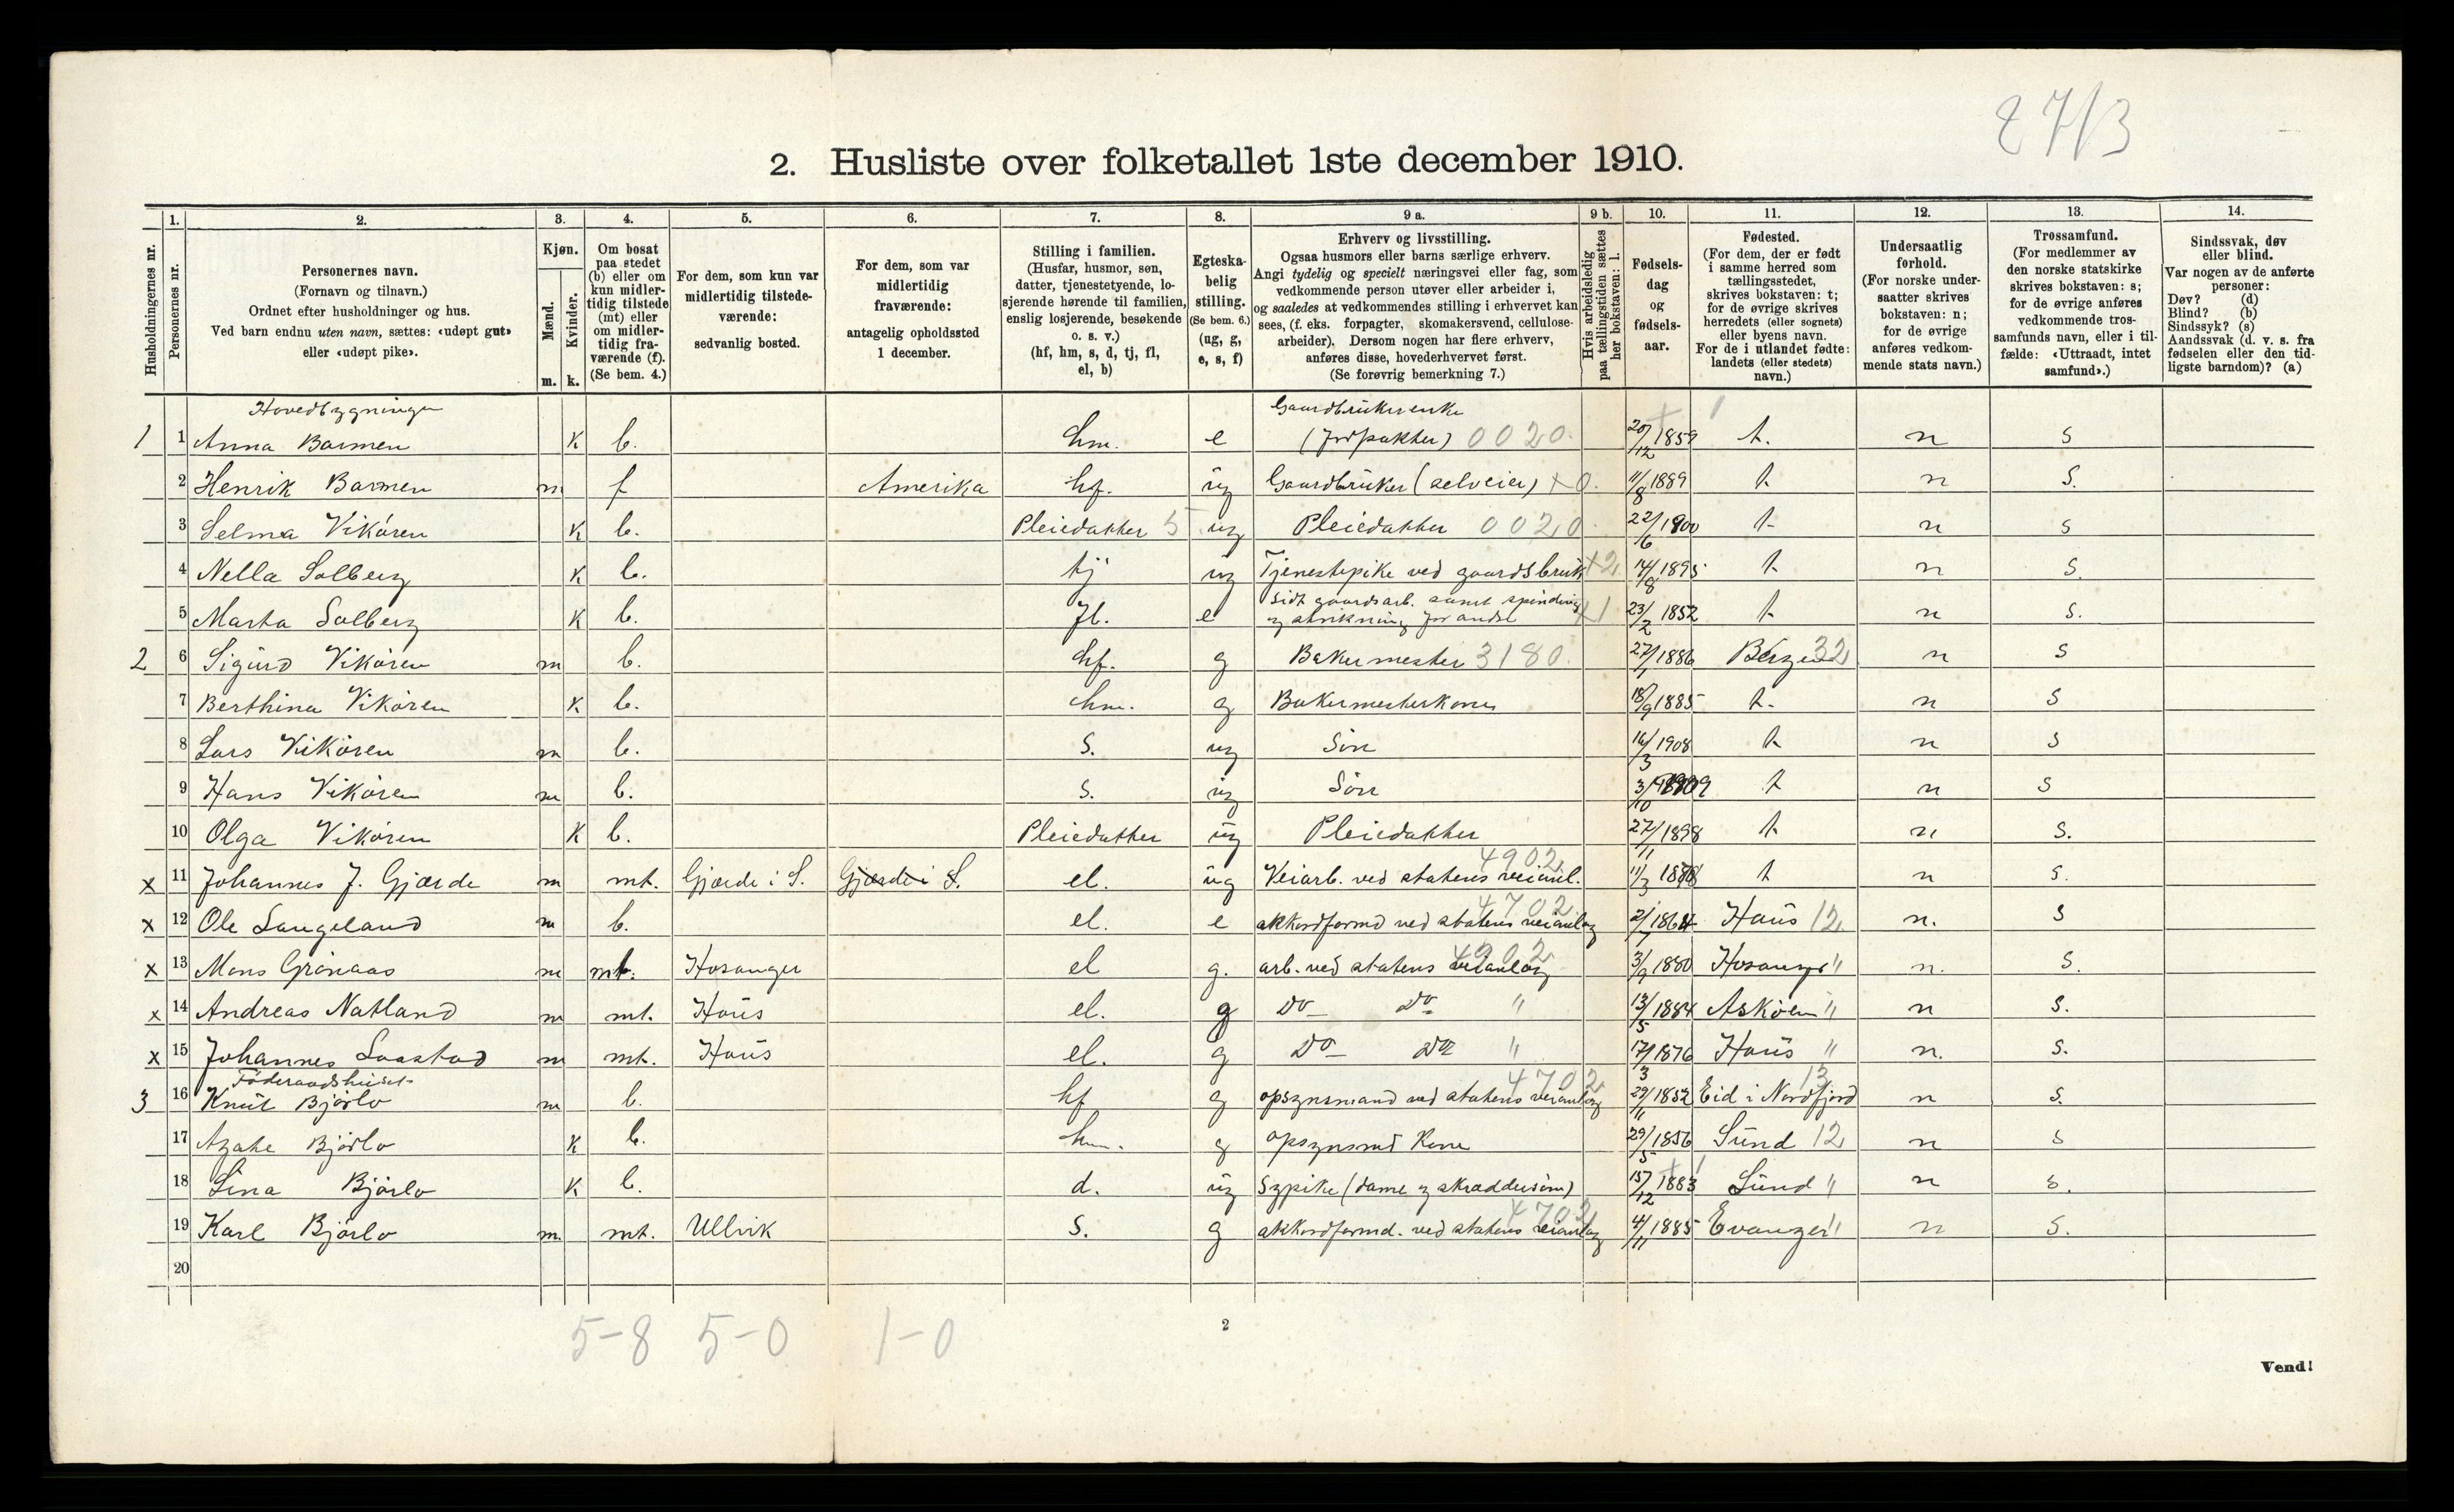 27/3
2. Husliste over folketallet 1ste december 1910.
Husholdningernes nr.
1.
Personernes nr.
2.
Personernes navn.
(Fornavn og tilnavn.)
Ordnet efter husholdninger og hus.
Ved barn endnu uten navn, sættes: «udøpt gut»
eller «udøpt pike».
3.
Kjøn.
Mænd.
Kvinder.
m. k.
4.
Om bosat
paa stedet
(b) eller om
kun midler-
tidig tilstede
(mt) eller
om midler-
tidig fra-
værende (f).
(Se bem. 4.)
5.
For dem, som kun var
midlertidig tilstede-
værende:
sedvanlig bosted.
6.
For dem, som var
midlertidig
fraværende:
antagelig opholdssted
1 december.
7.
Stilling i familien.
(Husfar, husmor, søn,
datter, tjenestetyende, lo-
sjerende hørende til familien,
enslig losjerende, besøkende
o. s. v.)
(hf, hm, s, d, tj, fl,
el, b)
8.
Egteska-
belig
stilling.
(Se bem. 6.)
(ug, g,
e, s, f)
9 a.
Erhverv og livsstilling.
Ogsaa husmors eller barns særlige erhverv.
Angi tydelig og specielt næringsvei eller fag, som
vedkommende person utøver eller arbeider i,
og saaledes at vedkommendes stilling i erhvervet kan
sees, (f. eks. forpagter, skomakersvend, cellulose-
arbeider). Dersom nogen har flere erhverv,
anføres disse, hovederhvervet først.
(Se forøvrig bemerkning 7.)
9 b.
Hvis arbeidsledig
paa tællingstiden sættes
her bokstaven: l.
10.
Fødsels-
dag
og
fødsels-
aar.
11.
Fødested.
(For dem, der er født
i samme herred som
tællingsstedet,
skrives bokstaven: t;
for de øvrige skrives
herredets (eller sognets)
eller byens navn.
For de i utlandet fødte:
landets (eller stedets)
navn.)
12.
Undersaatlig
forhold.
(For norske under-
saatter skrives
bokstaven: n;
for de øvrige
anføres vedkom-
mende stats navn.)
13.
Trossamfund.
(For medlemmer av
den norske statskirke
skrives bokstaven: s;
for de øvrige anføres
vedkommende tros-
samfunds navn, eller i til-
fælde: «Uttraadt, intet
samfund».)
14.
Sindssvak, døv
eller blind.
Var nogen av de anførte
personer:
Døv? (d)
Blind? (b)
Sindssyk? (s)
Aandssvak (d. v. s. fra
fødselen eller den tid-
ligste barndom)? (a)
Hovedbygningen Gaardbrukerenke
1 1 Anna Barmen K b. hm. e 0020 20/12 1859 t. n s
2 Henrik Barmen m f Amerika hf. ug Gaardbruker (selveier) +0. 11/8 1889 t n s.
3 Selma Vikören K b. Pleiedatter 5 ug Pleiedatter 0020 22/6 1900 t n s
4 Nella Solberg K b. tj ug Tjenestepike ved gaardsbruk +2 14/8 1895 t n s.
5 Marta Solberg K b. fl. e Lidt gaardsarb. samt spinding og strikning for andre 23/2 1852 t n s.
2 6 Sigurd Vikören m b. hf. g Bakermester 3180 27/1 1886 Bergen 32 n s
7 Berthina Vikören K b. hm. g Bakermesterkone 18/9 1885 t. n s
8 Lars Vikören m b. s. ug Sön 16/3 1908 t n s
9 Hans Vikören m b. s. ug Sön 3/10 1909 t n s
10 Olga Vikören K b. Pleiedatter ug Pleiedatter 27/11 1898 t n s.
x 11 Johannes J. Gjærde m mt. Gjærde i S. Gjærde i S. el. ug Veiarb. ved statens veianl. 4902 11/3 t n s.
x 12 Ole Langeland m b. el. e akkordformd ved statens veianlæg 4702 2/7 1864 Haus 12 n. s
x 13 Mons Grönaas m mt. Hosanger el g. arb. ved statens veianlæg 4902 3/9 1880 Hosanger " n. s.
x 14 Andreas Natland m mt. Haus el. g do do " 13/5 1884 Asköen " n s.
x 15 Johannes Laastad m mt. Haus el. g do do " 17/3 1876 Haus " n. s.
Föderaadshuset
3 16 Knut Bjørlo m b. hf g opsynsmand ved statens veianlæg 4702 29/11 1852 Eid i Nordfjord 13 n s.
17 Agate Bjørlo K b. hm. g opsynsmd Kone 29/5 1856 Sund 12 n s
18 Lina Bjørlo K b. d. ug Sypike (dame og skræddersöm) 15/12 1883 Sund " n s.
19 Karl Bjørlo m. mt. Ullvik s. g akkordformd. ved statens veianlæg 4702 4/11 1885 Evanger " n s.
20
5-8 5-0 1-0
2
Vend!